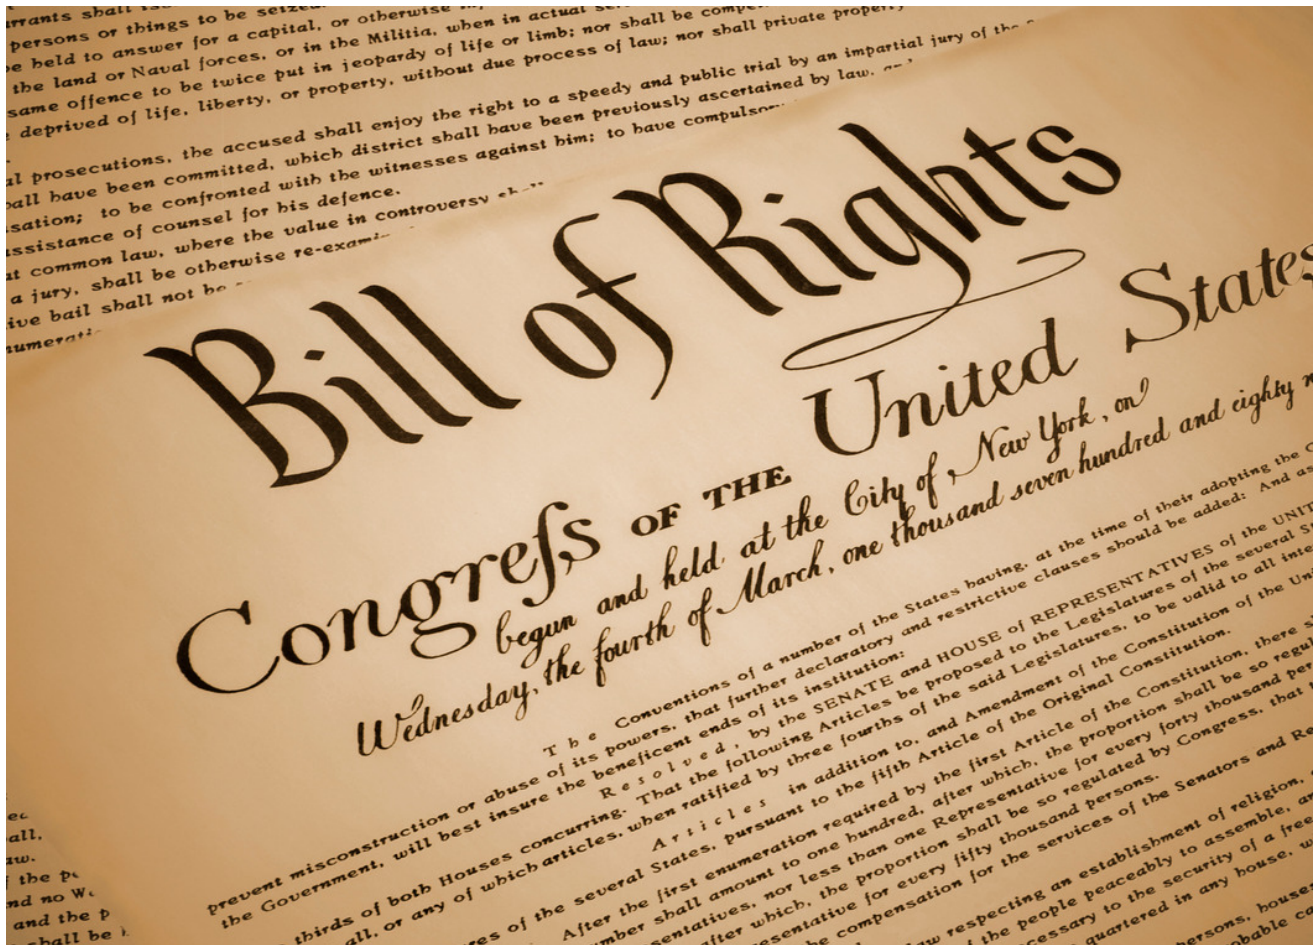 rrants shall
persons or things to be seized.
be held to answer for a capital, or otherwise
the land or Naval forces, or in the Militia, when in actual
same offence to be twice put in jeopardy of life or limb; nor shall be
deprived of life, liberty, or property, without due process of law; nor shall private property
al prosecutions, the accused shall enjoy the right to a speedy and public trial by an impartial jury of the
hall have been committed, which district shall have been previously ascertained by law, and
sation; to be confronted with the witnesses against him; to have compulsory
ssistance of counsel for his defence.
at common law, where the value in controversy shall
a jury, shall be otherwise re-exami
ive bail shall not be
numerati
Bill of Rights
Congreſs OF THE United States
begun and held at the City of New York, on
Wednesday, the fourth of March, one thousand seven hundred and eighty n
The Conventions of a number of the States having, at the time of their adopting the C
prevent misconstruction or abuse of its powers, that further declaratory and restrictive clauses should be added: And as
the Government, will best insure the beneficent ends of its institution:
Resolved, by the SENATE and HOUSE of REPRESENTATIVES of the UNIT
thirds of both Houses concurring. That the following Articles be proposed to the Legislatures of the several S
all, or any of which articles, when ratified by three fourths of the said Legislatures, to be valid to all inte
Articles in addition to, and Amendment of the Constitution of the Uni
res of the several States, pursuant to the fifth Article of the Original Constitution.
After the first enumeration required by the first Article of the Constitution, there s
mber shall amount to one hundred, after which, the proportion shall be so regul
sentatives, nor less than one Representative for every forty thousand per
after which, the proportion shall be so regulated by Congress, that
esentative for every fifty thousand persons.
he compensation for the services of the Senators and Re
aw respecting an establishment of religion,
f the people peaceably to assemble, an
cessary to the security of a free
quartered in any house, w
ersons, house
obable ca
ec
all,
aw.
f the pe
nd no
and the p
shall be